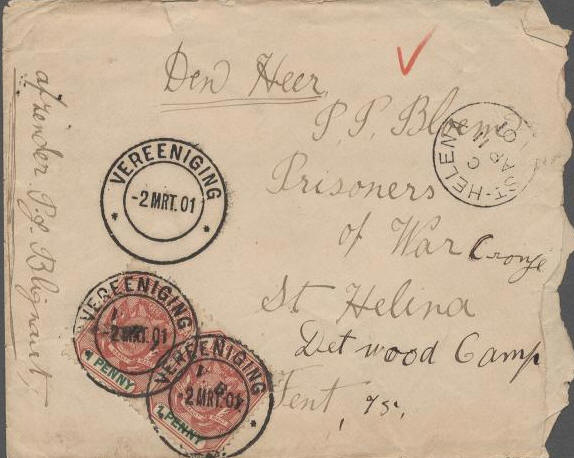 Den Heer
P. P. Blom
Prisoners
of War Cronje
St Helina
Detwood Camp
Tent, 75,
afzender P. J. Blignaut,
VEREENIGING
-2 MRT. 01
VEREENIGING
-2 MRT. 01
1 PENNY
VEREENIGING
-2 MRT. 01
1 PENNY
ST. HELENA
C
AP 11
01